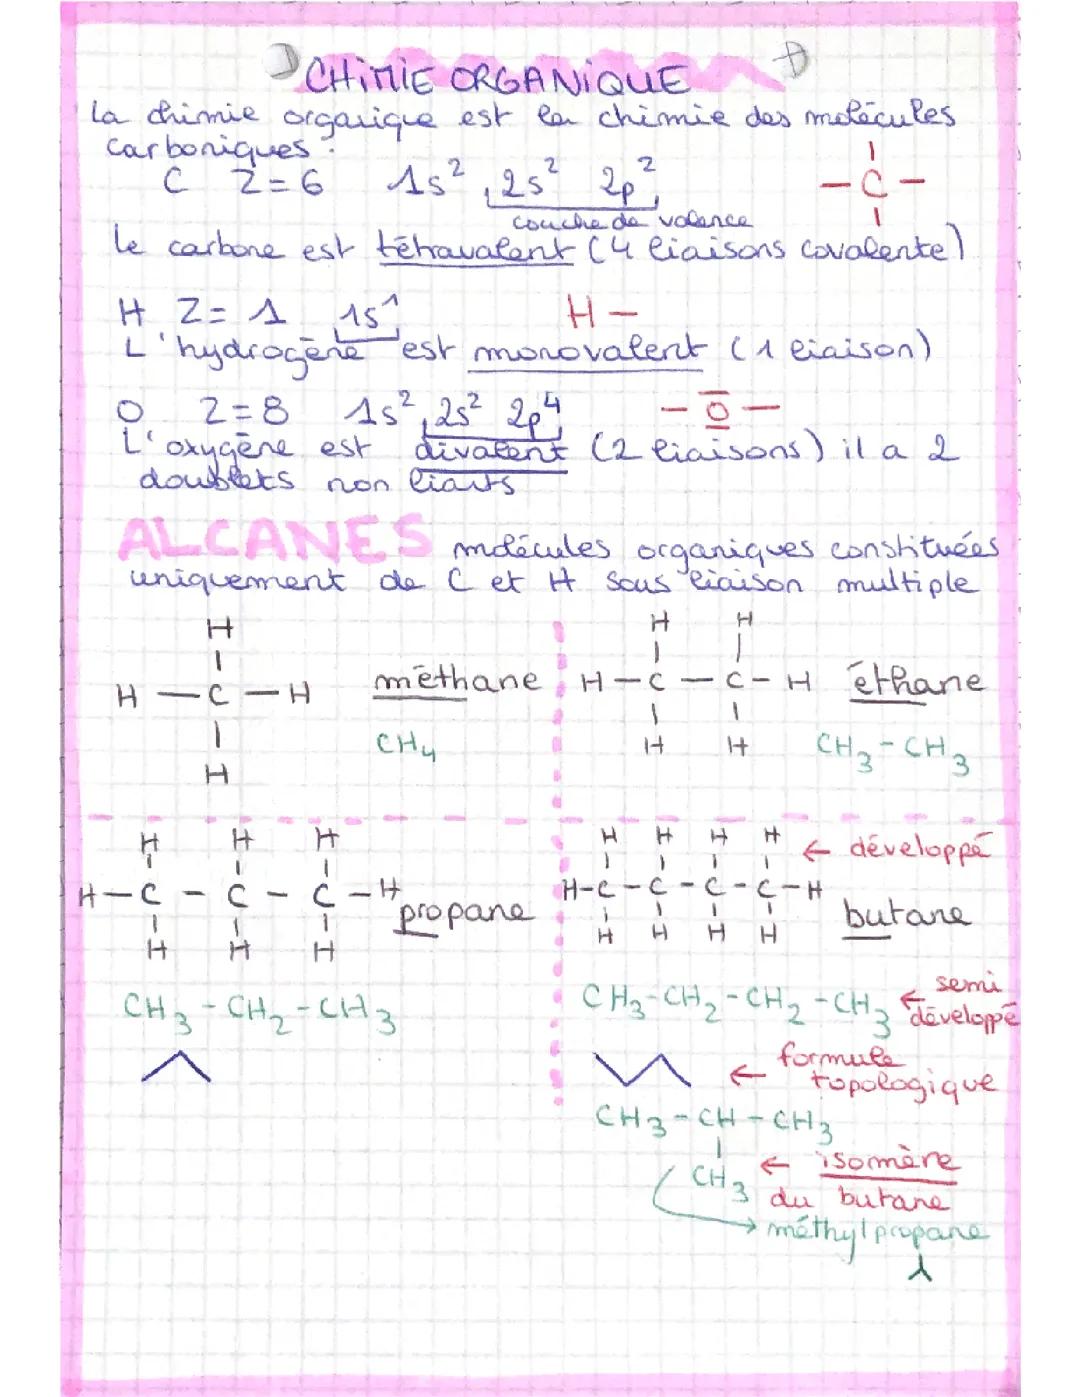 CHIMIE ORGANIQUE
La chimie organique est la chimie des molécules
carboniques.
C Z=6 1s² 2s² 2p²
couche de valence
- C -
Le carbone est tétravalent (4 liaisons covalente)
H Z= 1 1s¹ H -
L'hydrogène est monovalent (1 liaison)
O Z=8 1s² 2s² 2p⁴ - O -
L'oxygène est divalent (2 liaisons) il a 2
doublets non liants
ALCANES molécules organiques constituées
uniquement de C et H sans liaison multiple
H
H - C - H
H
méthane
CH₄
H H
H - C - C - H
H H
éthane
CH₃ - CH₃
H H H
H - C - C - C - H
H H H
propane
CH₃ - CH₂ - CH₃
H H H H ← développé
H - C - C - C - C - H
H H H H
butane
CH₃ - CH₂ - CH₂ - CH₃ ← semi
développé
← formule
topologique
CH₃ - CH - CH₃
CH₃ ← isomère
du butane
→ méthylpropane